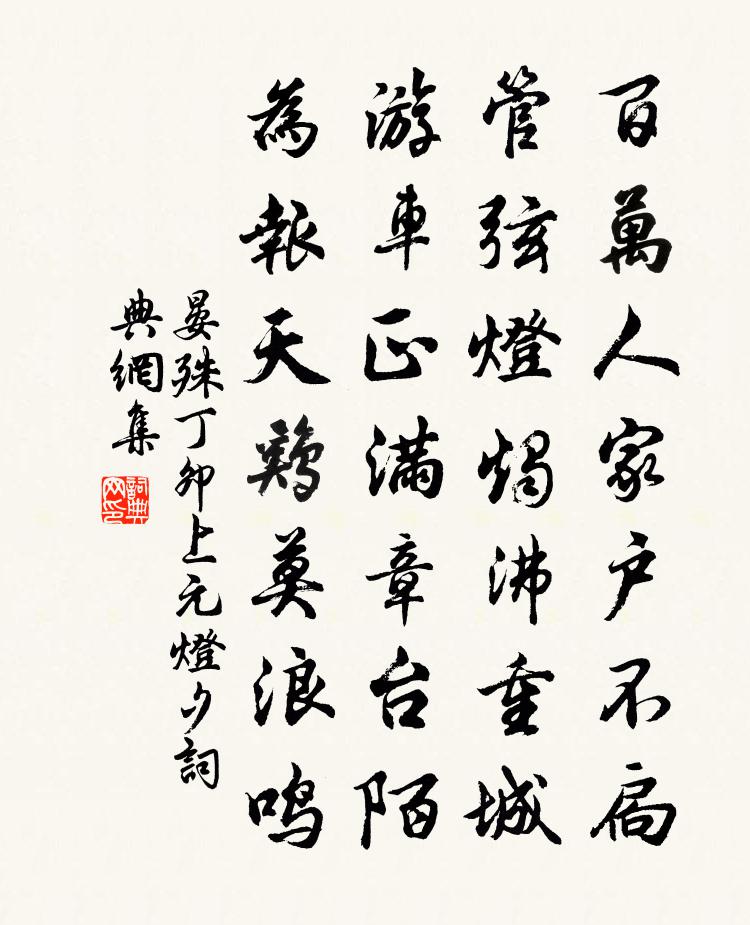 百萬人家戶不扃
管弦燈燭沸重城
游車正滿章台陌
為報天鷄莫浪鳴
晏殊丁卯上元燈夕詞
典網集
詞典网印